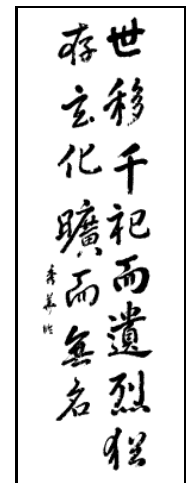 世移千祀而遺烈猶
存玄化曠而無名